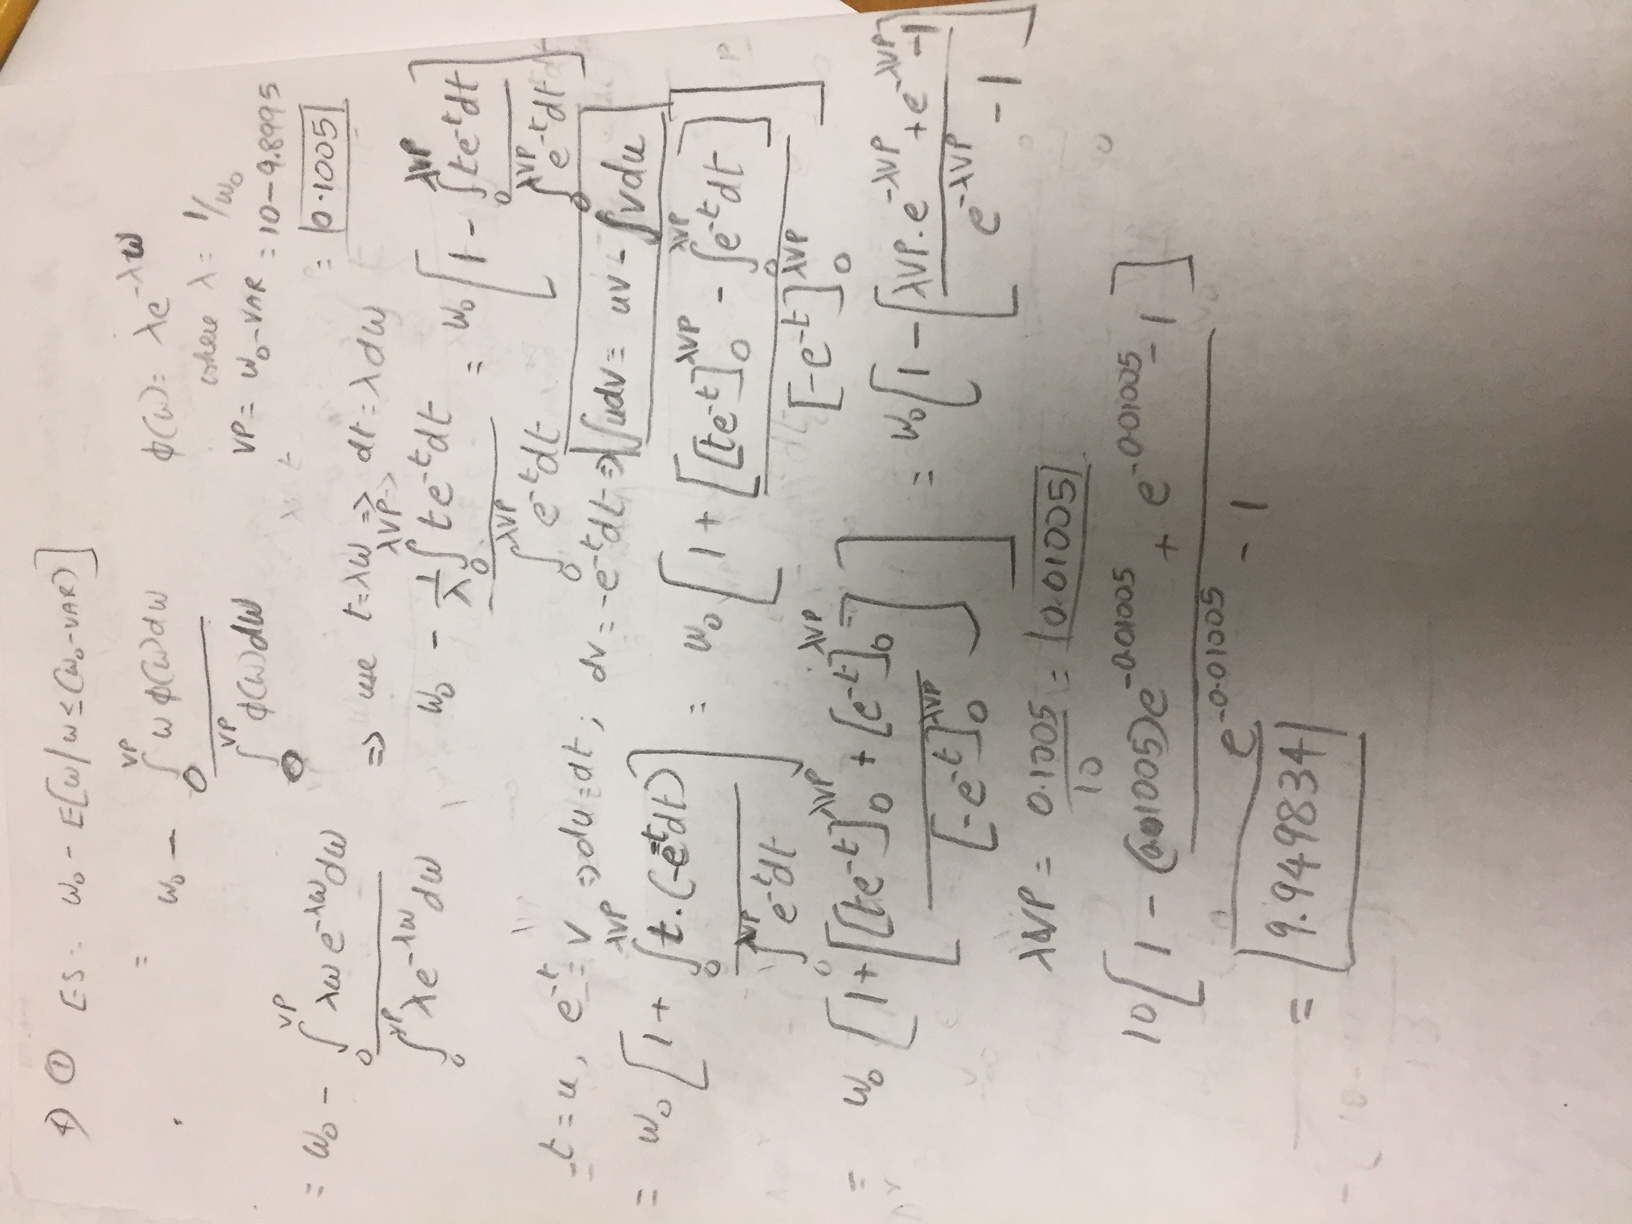 4) ① ES = W₀ - E[W/W ≤ (W₀-VAR)]
= W₀ - ∫₀^VP W φ(W)dW / ∫₀^VP φ(W)dW
φ(W) = λe^-λW
where λ = 1/W₀
VP = W₀-VAR = 10-9.8995
= 0.1005
= W₀ - ∫₀^VP λW e^-λW dW / ∫₀^VP λe^-λW dW
=> use t=λW => dt=λdW
W₀ - (1/λ)∫₀^λVP te^-t dt / ∫₀^λVP e^-t dt = W₀[1 - ∫₀^λVP te^-t dt / ∫₀^λVP e^-t dt]
t = u, e^-t = v => du=dt; dv = -e^-t dt => ∫udv = uv - ∫vdu
= W₀[1 + ∫₀^λVP t.(-e^-t dt) / ∫₀^λVP e^-t dt] = W₀[1 + [[te^-t]₀^λVP - ∫₀^λVP e^-t dt] / [-e^-t]₀^λVP]
= W₀[1+[[te^-t]₀^λVP + [e^-t]₀^λVP / [-e^-t]₀^λVP]] = W₀[1 - [λVP.e^-λVP + e^-λVP - 1 / e^-λVP - 1]]
λVP = 0.1005/10 = 0.01005
10[1 - (0.01005)e^-0.01005 + e^-0.01005 - 1 / e^-0.01005 - 1]
= 9.949834